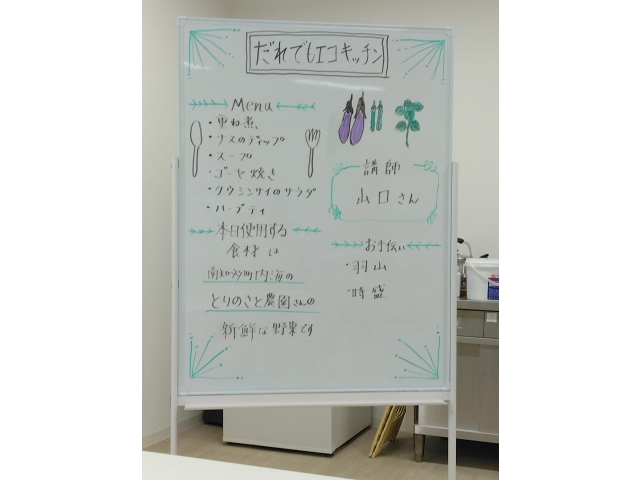 だれでもエコキッチン
Menu
・重ね煮
・ナスのディップ
・スープ
・ゴーヤ焼き
・クウシンサイのサラダ
・ハーブティ
本日使用する
食材は
南知多町内海の
とりのさと農園さんの
新鮮な野菜です
講師
山口さん
お手伝い
・羽山
・時盛